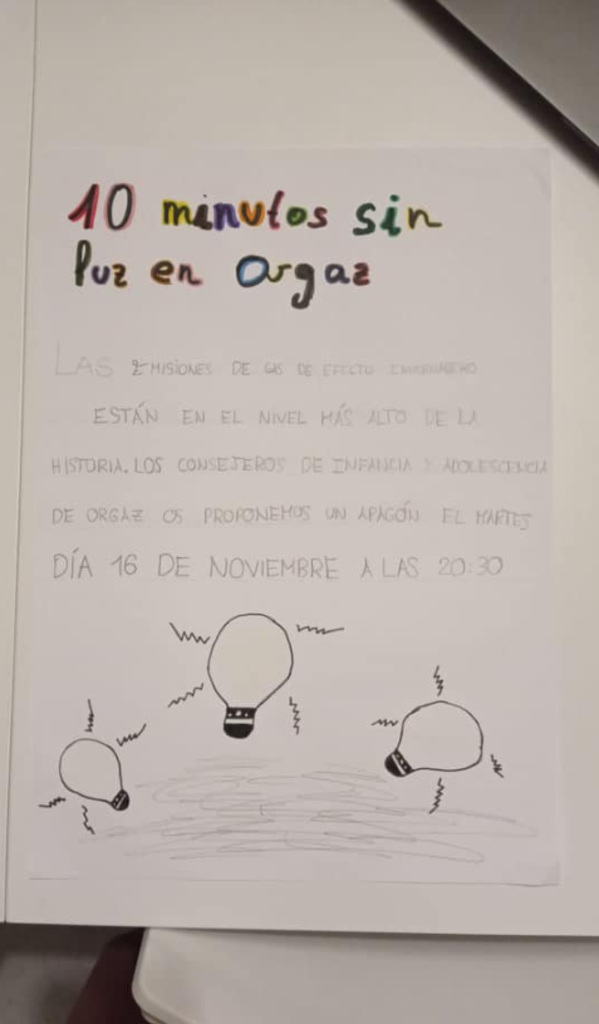 10 minutos sin
luz en Orgaz
LAS EMISIONES DE GAS DE EFECTO INVERNADERO
ESTÁN EN EL NIVEL MÁS ALTO DE LA
HISTORIA. LOS CONSEJEROS DE INFANCIA Y ADOLESCENCIA
DE ORGAZ OS PROPONEMOS UN APAGÓN EL MARTES
DÍA 16 DE NOVIEMBRE A LAS 20:30